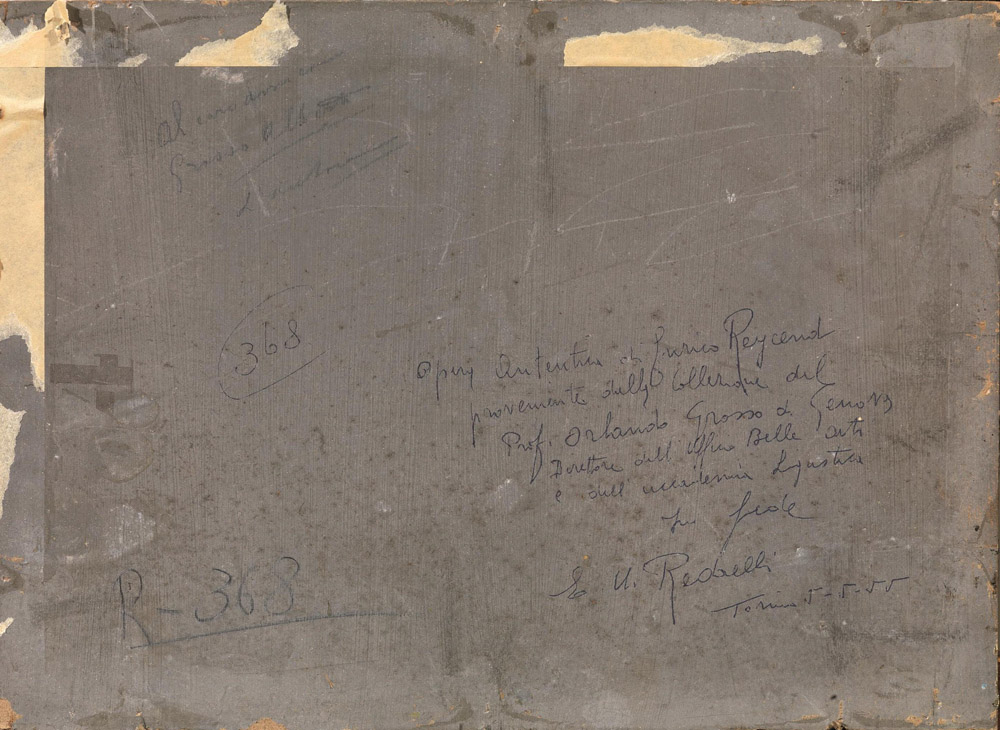 Al
Grosso
368
Opera Autentica di Enrico Reycend
proveniente dalla Collezione del
Prof. Orlando Grosso di Genova
Direttore dell'Uffico Belle Arti
e dell'accademia Ligustica
In fede
E. U. Redaelli
Torino 5-5-55
R-363